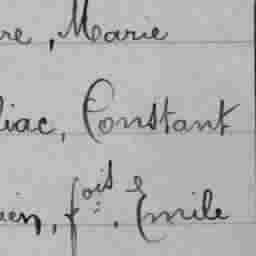 re, Marie
liac, Constant
ien, f.ois, Emile